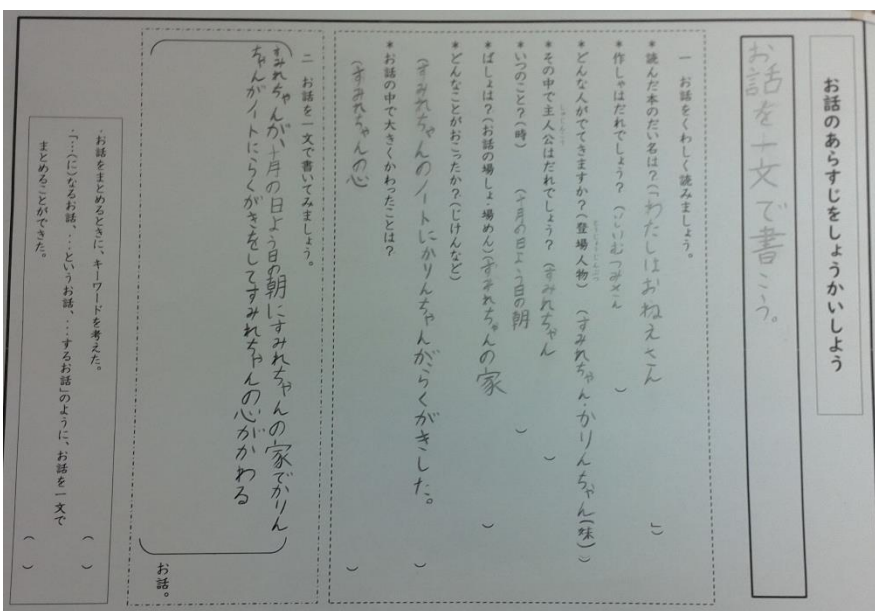 お話のあらすじをしょうかいしよう
お話を一文で書こう。
一 お話をくわしく読みましょう。
*読んだ本のだい名は?(「わたしはおねえさん」)
*作しゃはだれでしょう?(いしいむつみさん)
*どんな人がでてきますか?(登場人物)(すみれちゃん・かりんちゃん(妹))
*その中で主人公はだれでしょう?(すみれちゃん)
*いつのこと?(時)(十月の日よう日の朝)
*ばしょは?(お話の場しょ・場めん)(すみれちゃんの家)
*どんなことがおこったか?(じけんなど)
(すみれちゃんのノートにかりんちゃんがらくがきした。)
*お話の中で大きくかわったことは?
(すみれちゃんの心)
二 お話を一文で書いてみましょう。
すみれちゃんが、十月の日よう日の朝にすみれちゃんの家でかりん
ちゃんがノートにらくがきをしてすみれちゃんの心がかわる
お話。
・お話をまとめるときに、キーワードを考えた。( )
・「…(に)なるお話、…というお話、…するお話」のように、お話を一文で
まとめることができた。( )